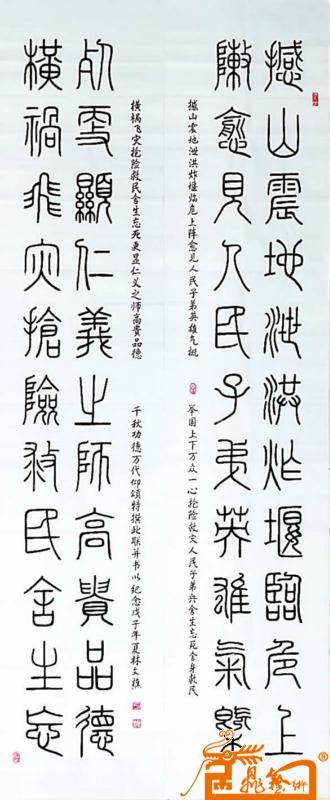 撼山震地泄洪炸堰臨危上
陳愈見人民子弟英雄氣槩
撼山震地泄洪炸堰临危上阵愈见人民子弟英雄气概
举国上下万众一心抢险救灾人民子弟兵舍生忘死舍身救民
橫禍飛灾搶險救民舍生忘
死更顯仁義之師高貴品德
横祸飞灾抢险救民舍生忘死更显仁义之师高贵品德
千秋功德万代仰頌特撰此联并书以纪念戊子年夏林文